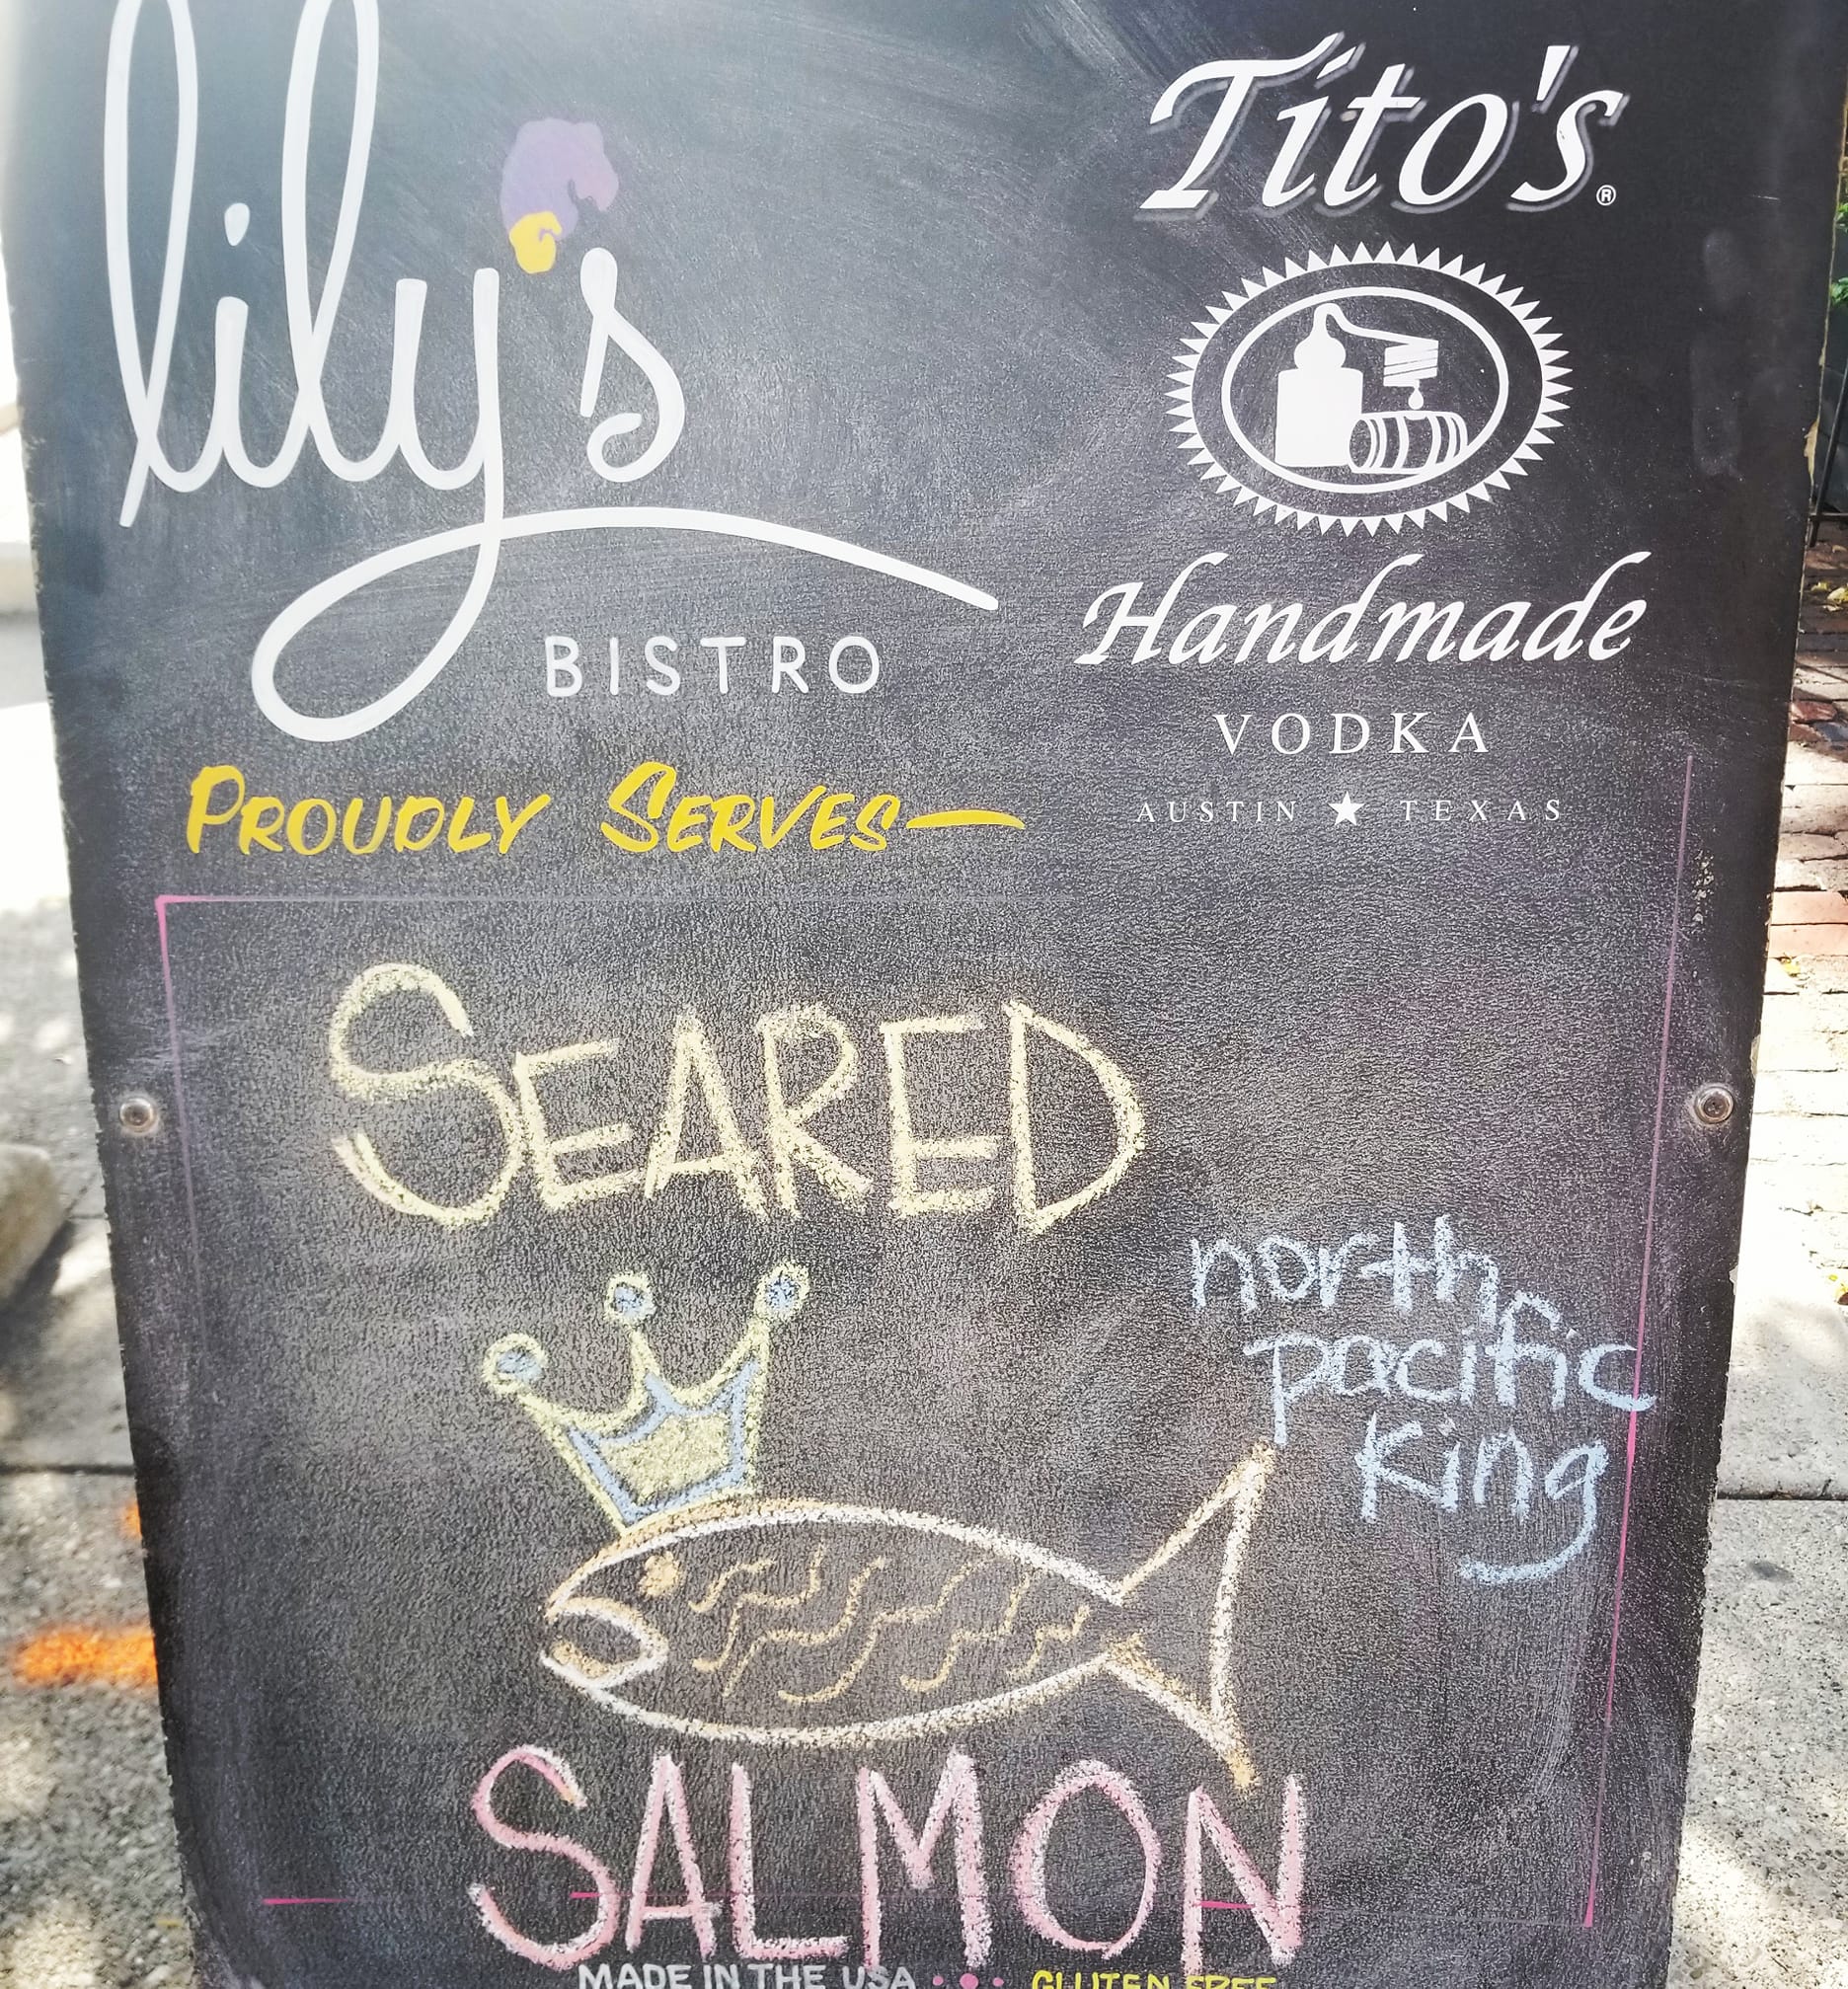 lily's
BISTRO
PROUDLY SERVES—
Tito's®
Handmade
VODKA
AUSTIN ★ TEXAS
SEARED
north
pacific
King
SALMON
MADE IN THE USA • • • GLUTEN FREE